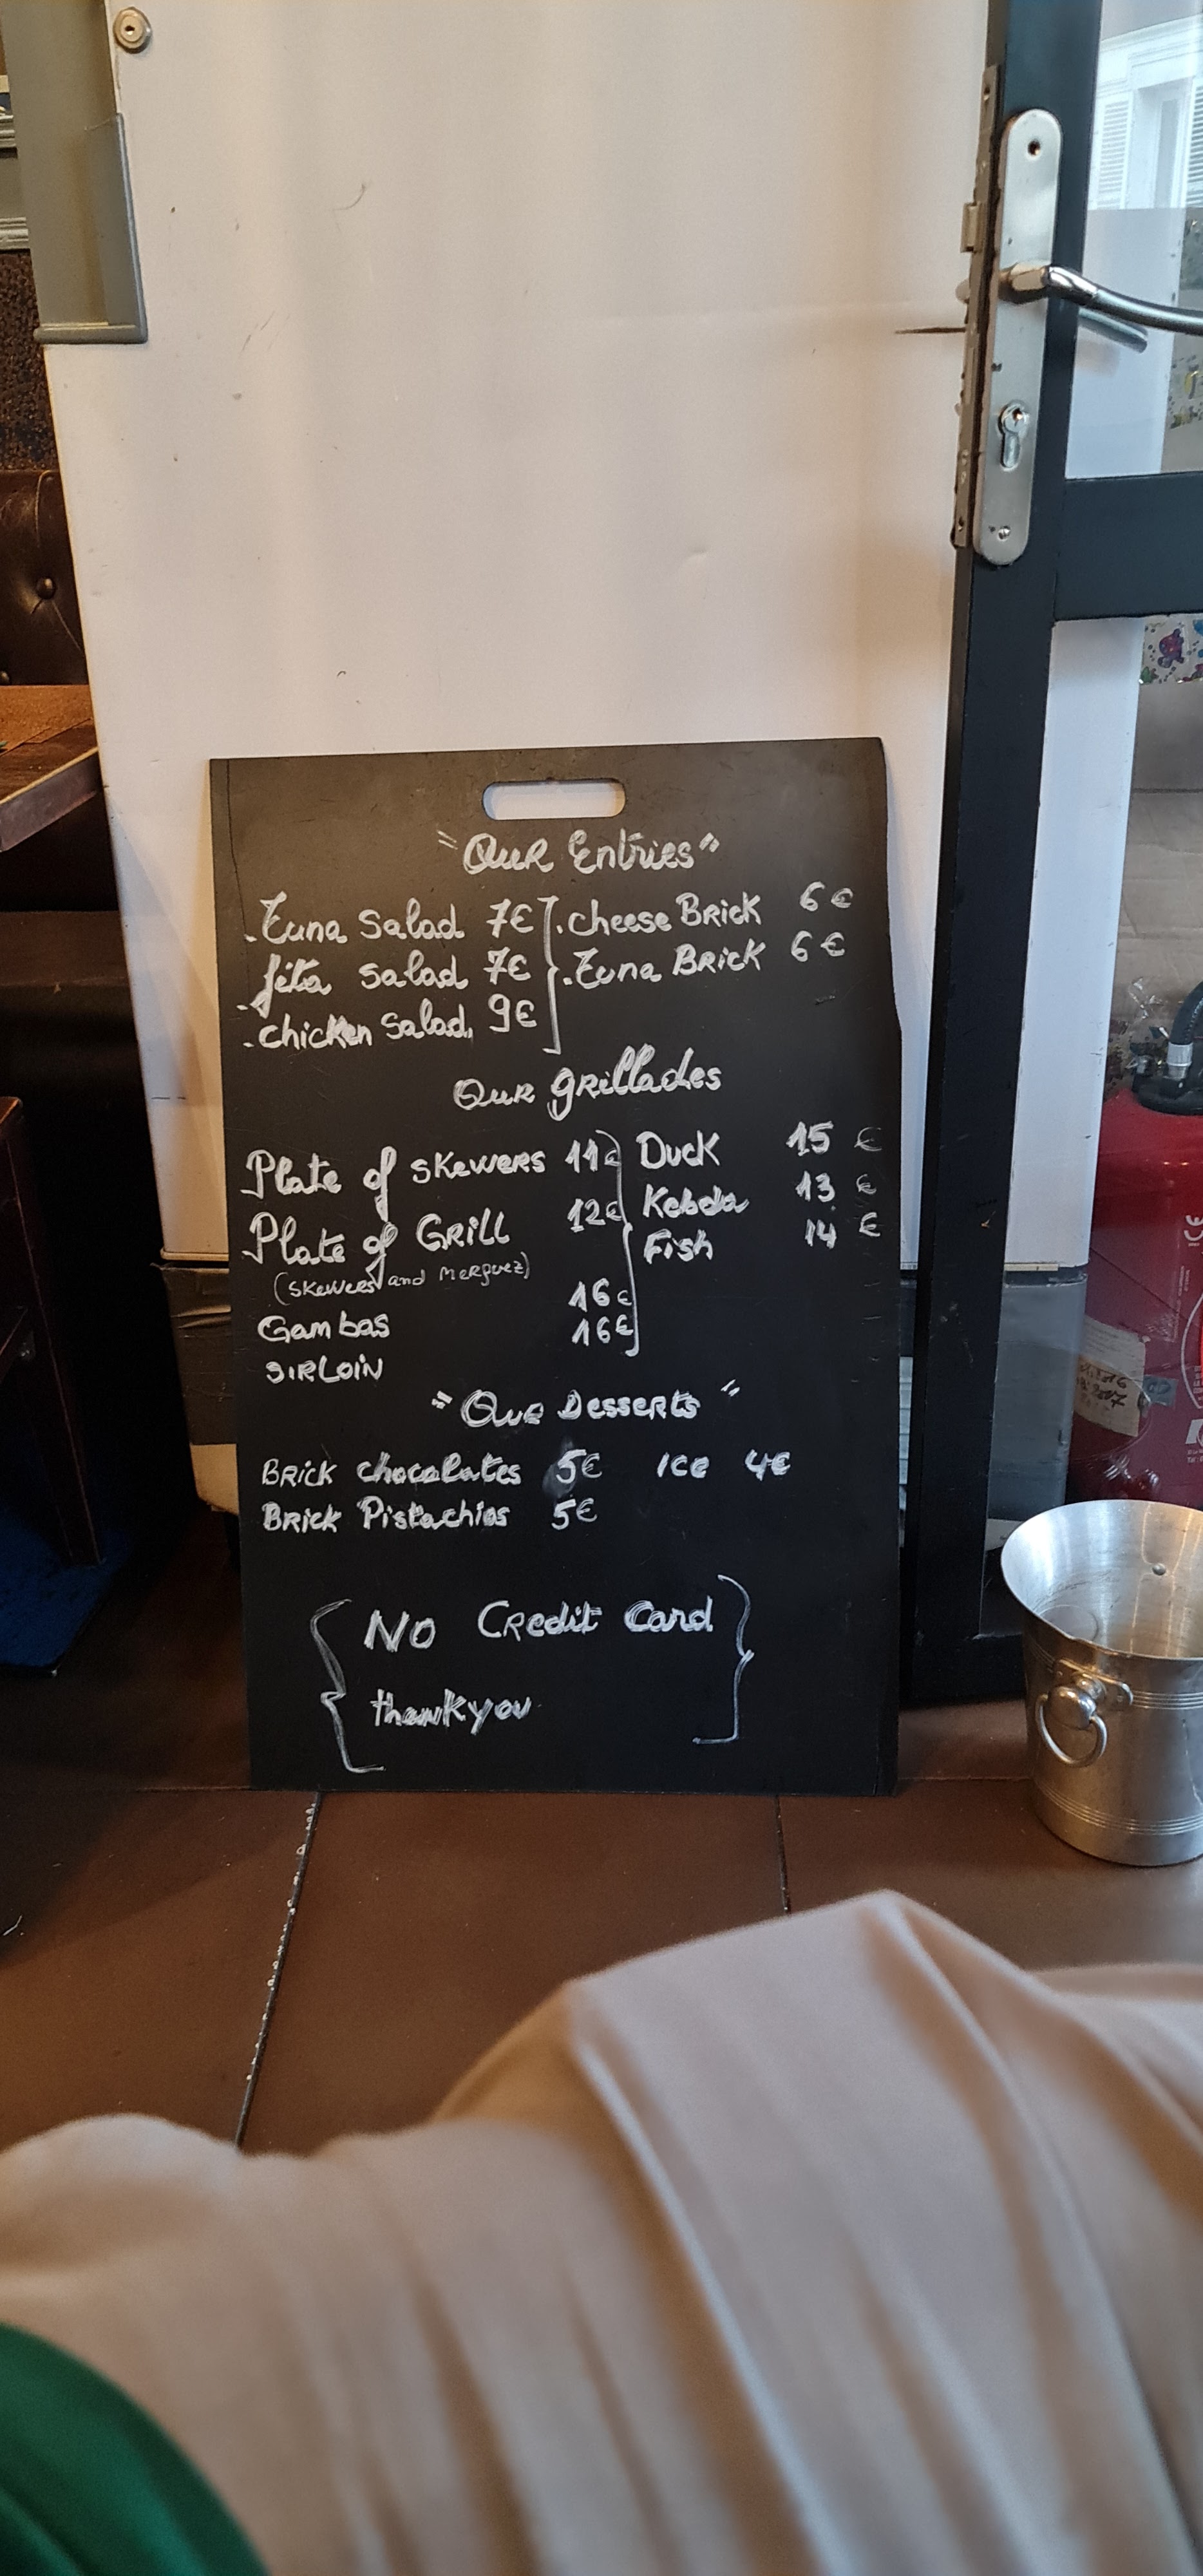 "Our Entries"
. Tuna Salad 7€ . cheese Brick 6€
. feta Salad 7€ . Tuna Brick 6€
. chicken Salad 9€
Our grillades
Plate of skewers 11€ Duck 15 €
Plate of Grill 12€ Kebda 13 €
(skewers and Merguez) Fish 14 €
Gambas 16€
SIRLOIN 16€
"Our Desserts"
Brick chocolates 5€ ice 4€
Brick Pistachios 5€
No Credit Card
thank you